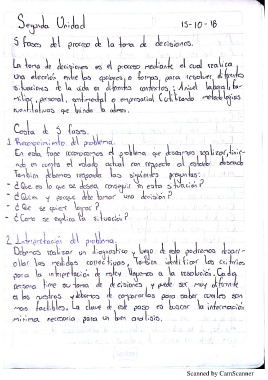 Segunda Unidad 15-10-18
5 fases del proceso de la toma de decisiones.
La toma de decisiones es el proceso mediante el cual se realiza
una elección entre las opciones o formas, para resolver diferentes
situaciones de la vida en diferentes contextos: A nivel laboral, fa-
miliar, personal, sentimental o empresarial (utilizando metodologías
cuantitativas que brinda la
Consta de 5 fases.
1. Reconocimiento del problema.
En esta fase reconocemos el problema que deseamos
en cuenta el estado actual con respecto al estado deseado
Tambien debemos responder las siguientes preguntas:
- ¿Que es lo que se desea conseguir en esta situación?
- ¿Quien y porque debe tomar una decisión?
- ¿Que se quiere lograr?
- ¿Como se explica la situación?
2. Interpretación del problema.
Debemos realizar un diagnostico y luego de esto podremos desarr-
ollar las medidas correctivas, Tambien identificar los criterios
para la interpretación de llegamos a la resolución. Cada
persona tiene su toma de decisiones y puede ser muy diferente
a las nuestras y debemos de compararlas para saber cuales son
mas factibles. La clave de este paso es buscar la información
mínima necesaria para un buen análisis.
Scanned by CamScanner